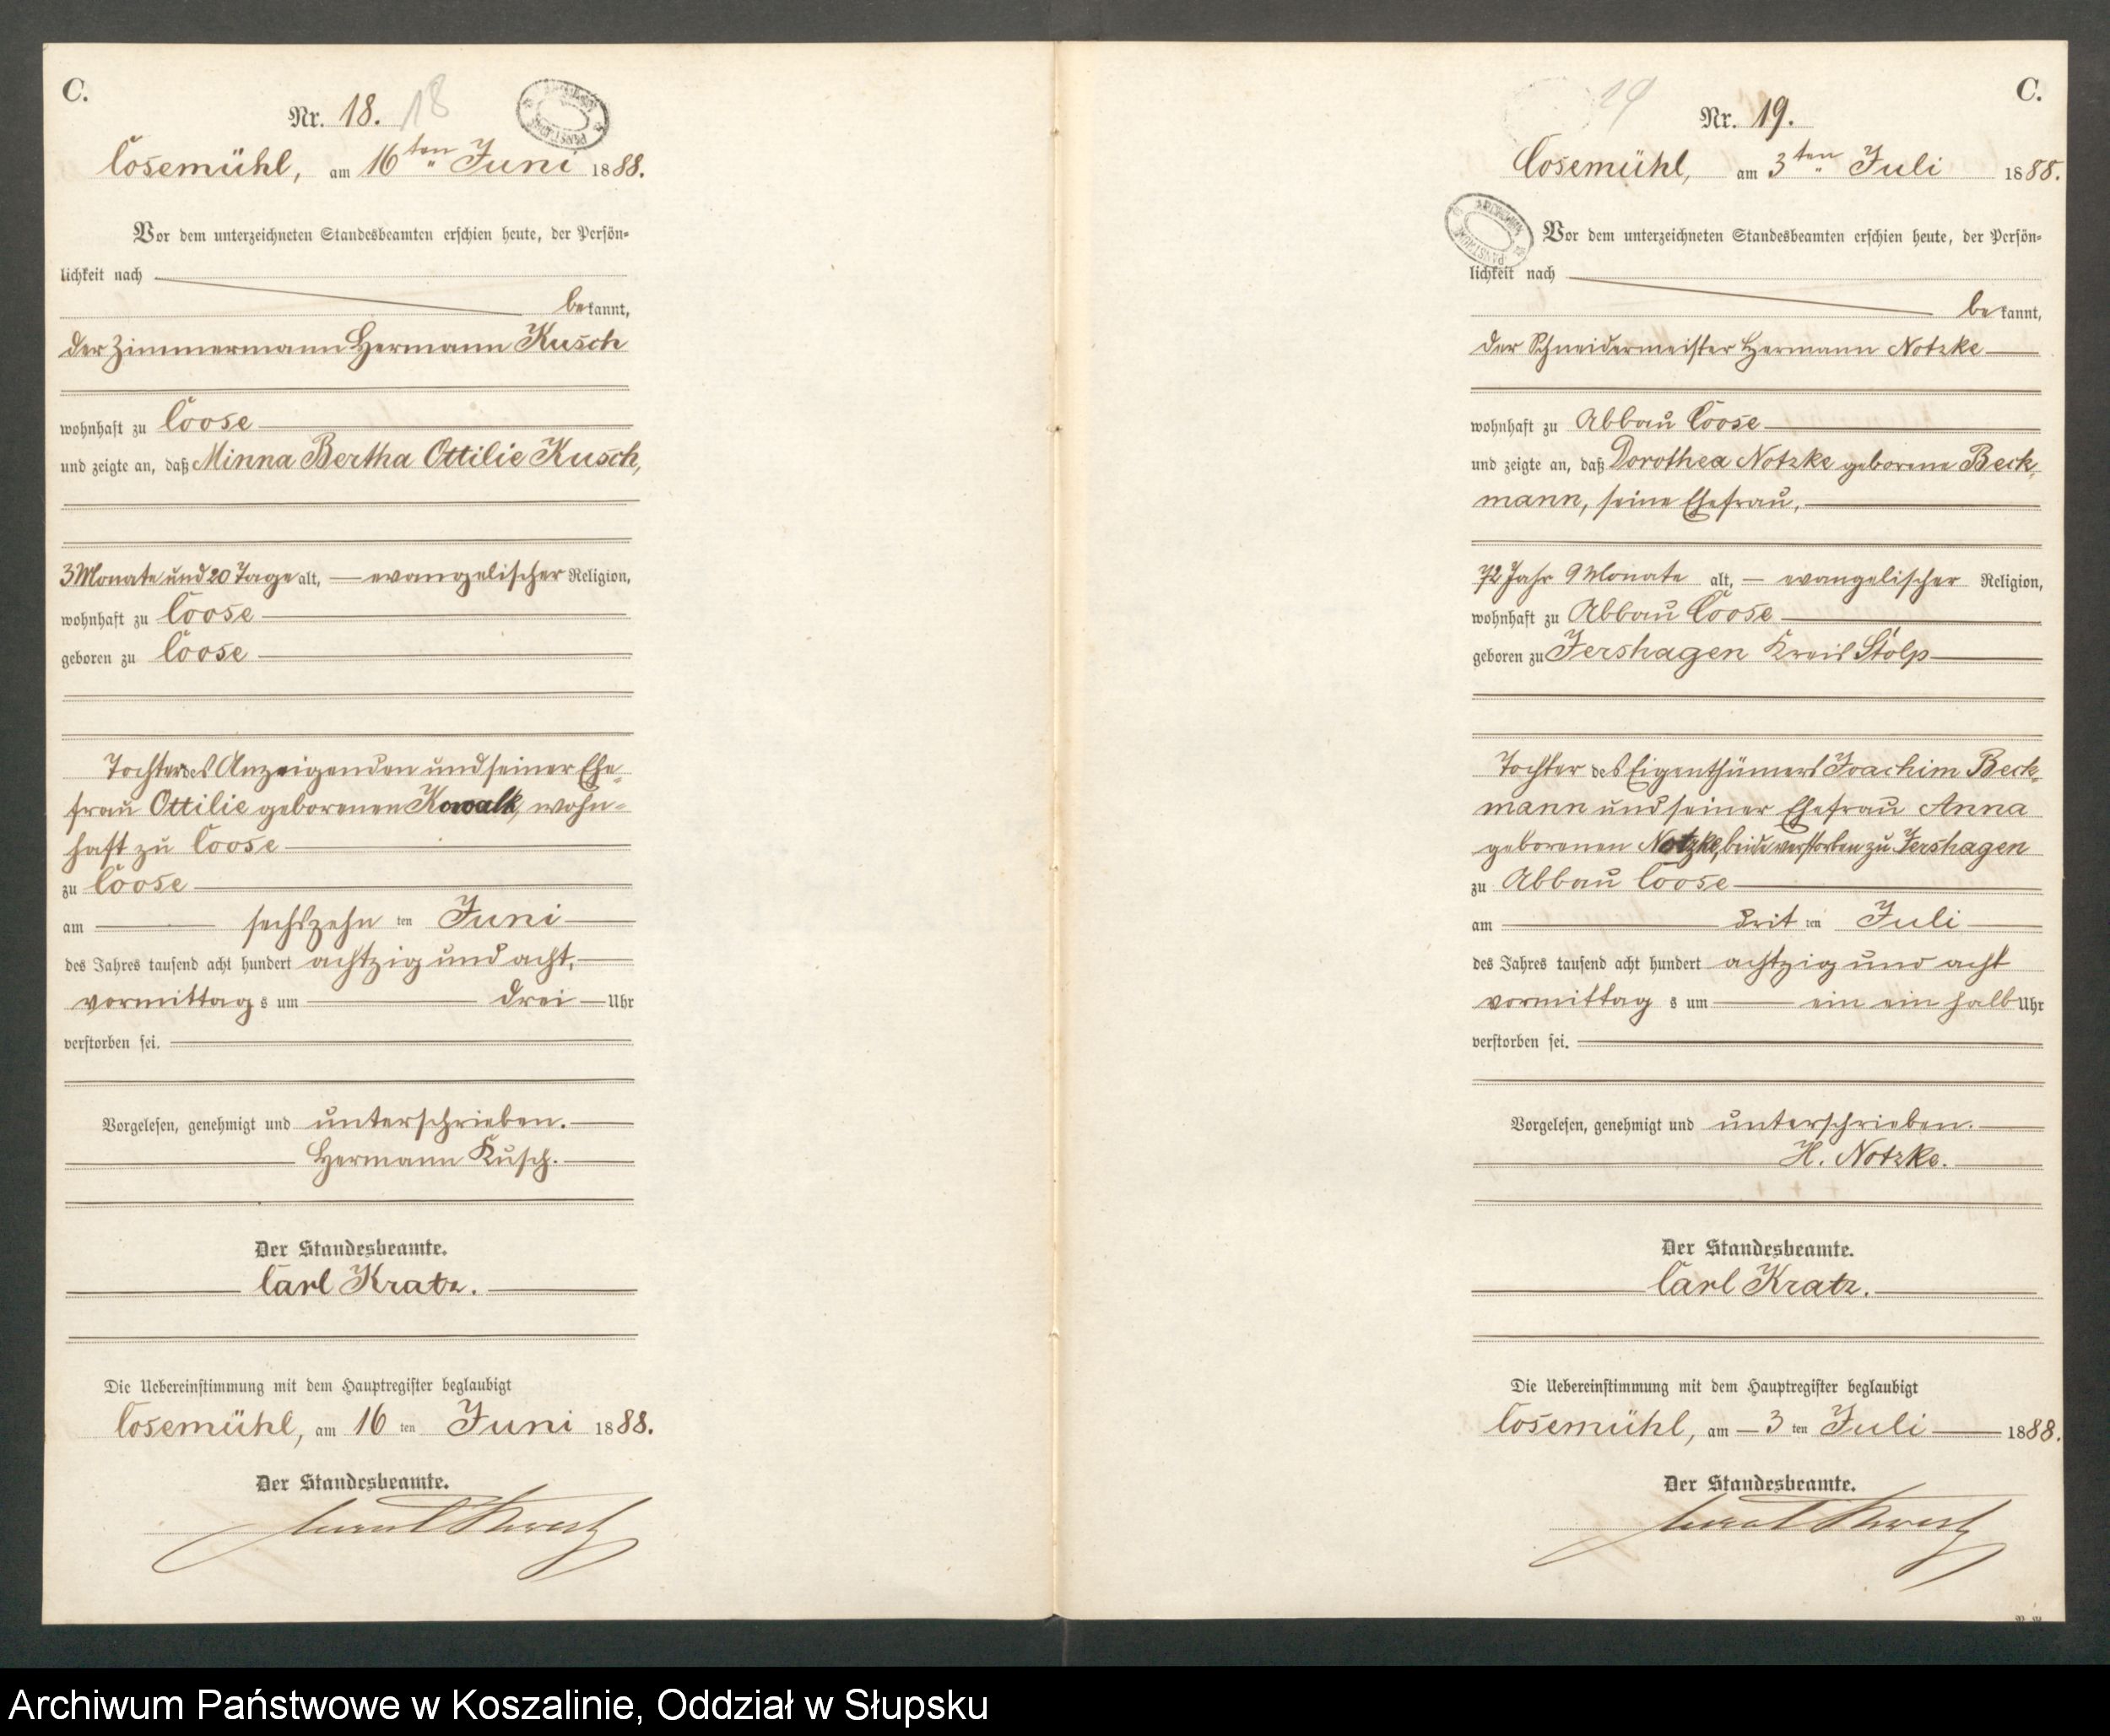 C.
Nr. 18. 18
Cosemühl, am 16ten Juni 1888.
Vor dem unterzeichneten Standesbeamten erschien heute, der Persön-
lichkeit nach
bekannt,
der Zimmermann Hermann Kusch
wohnhaft zu Coose
und zeigte an, daß Minna Bertha Ottilie Kusch,
3 Monate und 20 Tage alt, evangelischer Religion,
wohnhaft zu Coose
geboren zu Coose
Tochter des Anzeigenden und seiner Ehe-
frau Ottilie geborenen Kowalk, wohn-
haft zu Coose
zu Coose
am sechszehn ten Juni
des Jahres tausend acht hundert achtzig und acht,
vormittag s um drei Uhr
verstorben sei.
Vorgelesen, genehmigt und unterschrieben.
Hermann Kusch.
Der Standesbeamte.
Carl Kratz.
Die Uebereinstimmung mit dem Hauptregister beglaubigt
Cosemühl, am 16 ten Juni 1888.
Der Standesbeamte.
C.
19
Nr. 19.
Cosemühl, am 3ten Juli 1888.
Vor dem unterzeichneten Standesbeamten erschien heute, der Persön-
lichkeit nach
bekannt,
der Schneidermeister Hermann Notzke
wohnhaft zu Abbau Coose
und zeigte an, daß Dorothea Notzke geborene Beck-
mann, seine Ehefrau,
72 Jahr 9 Monate alt, evangelischer Religion,
wohnhaft zu Abbau Coose
geboren zu Jershagen Kreis Stolp
Tochter des Eigenthümers Joachim Beck-
mann und seiner Ehefrau Anna
geborenen Notzke, beide verstorben zu Jershagen
zu Abbau Coose
am drit ten Juli
des Jahres tausend acht hundert achtzig und acht
vormittag s um ein ein halb Uhr
verstorben sei.
Vorgelesen, genehmigt und unterschrieben.
H. Notzke.
Der Standesbeamte.
Carl Kratz.
Die Uebereinstimmung mit dem Hauptregister beglaubigt
Cosemühl, am 3 ten Juli 1888.
Der Standesbeamte.
Archiwum Państwowe w Koszalinie, Oddział w Słupsku